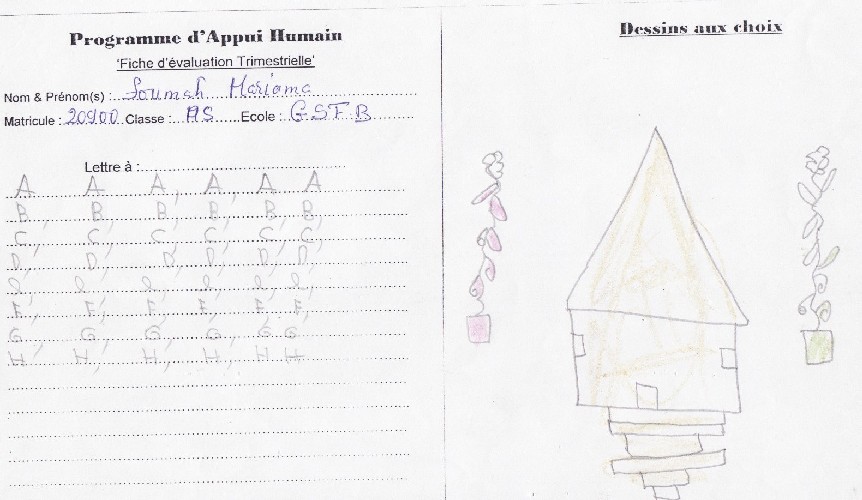 Programme d'Appui Humain
'Fiche d'évaluation Trimestrielle'
Nom & Prénom(s) : Soumah Mariama
Matricule : 20900 Classe : AS Ecole : GSFB
Lettre à :
A A A, A, A A
B, B, B, B, B, B,
C, C, C, C, C, C,
D, D, D, D, D, D,
F, F, F, F, F, F,
G, G, G, G, G G
H, H, H, H, H H
Dessins aux choix